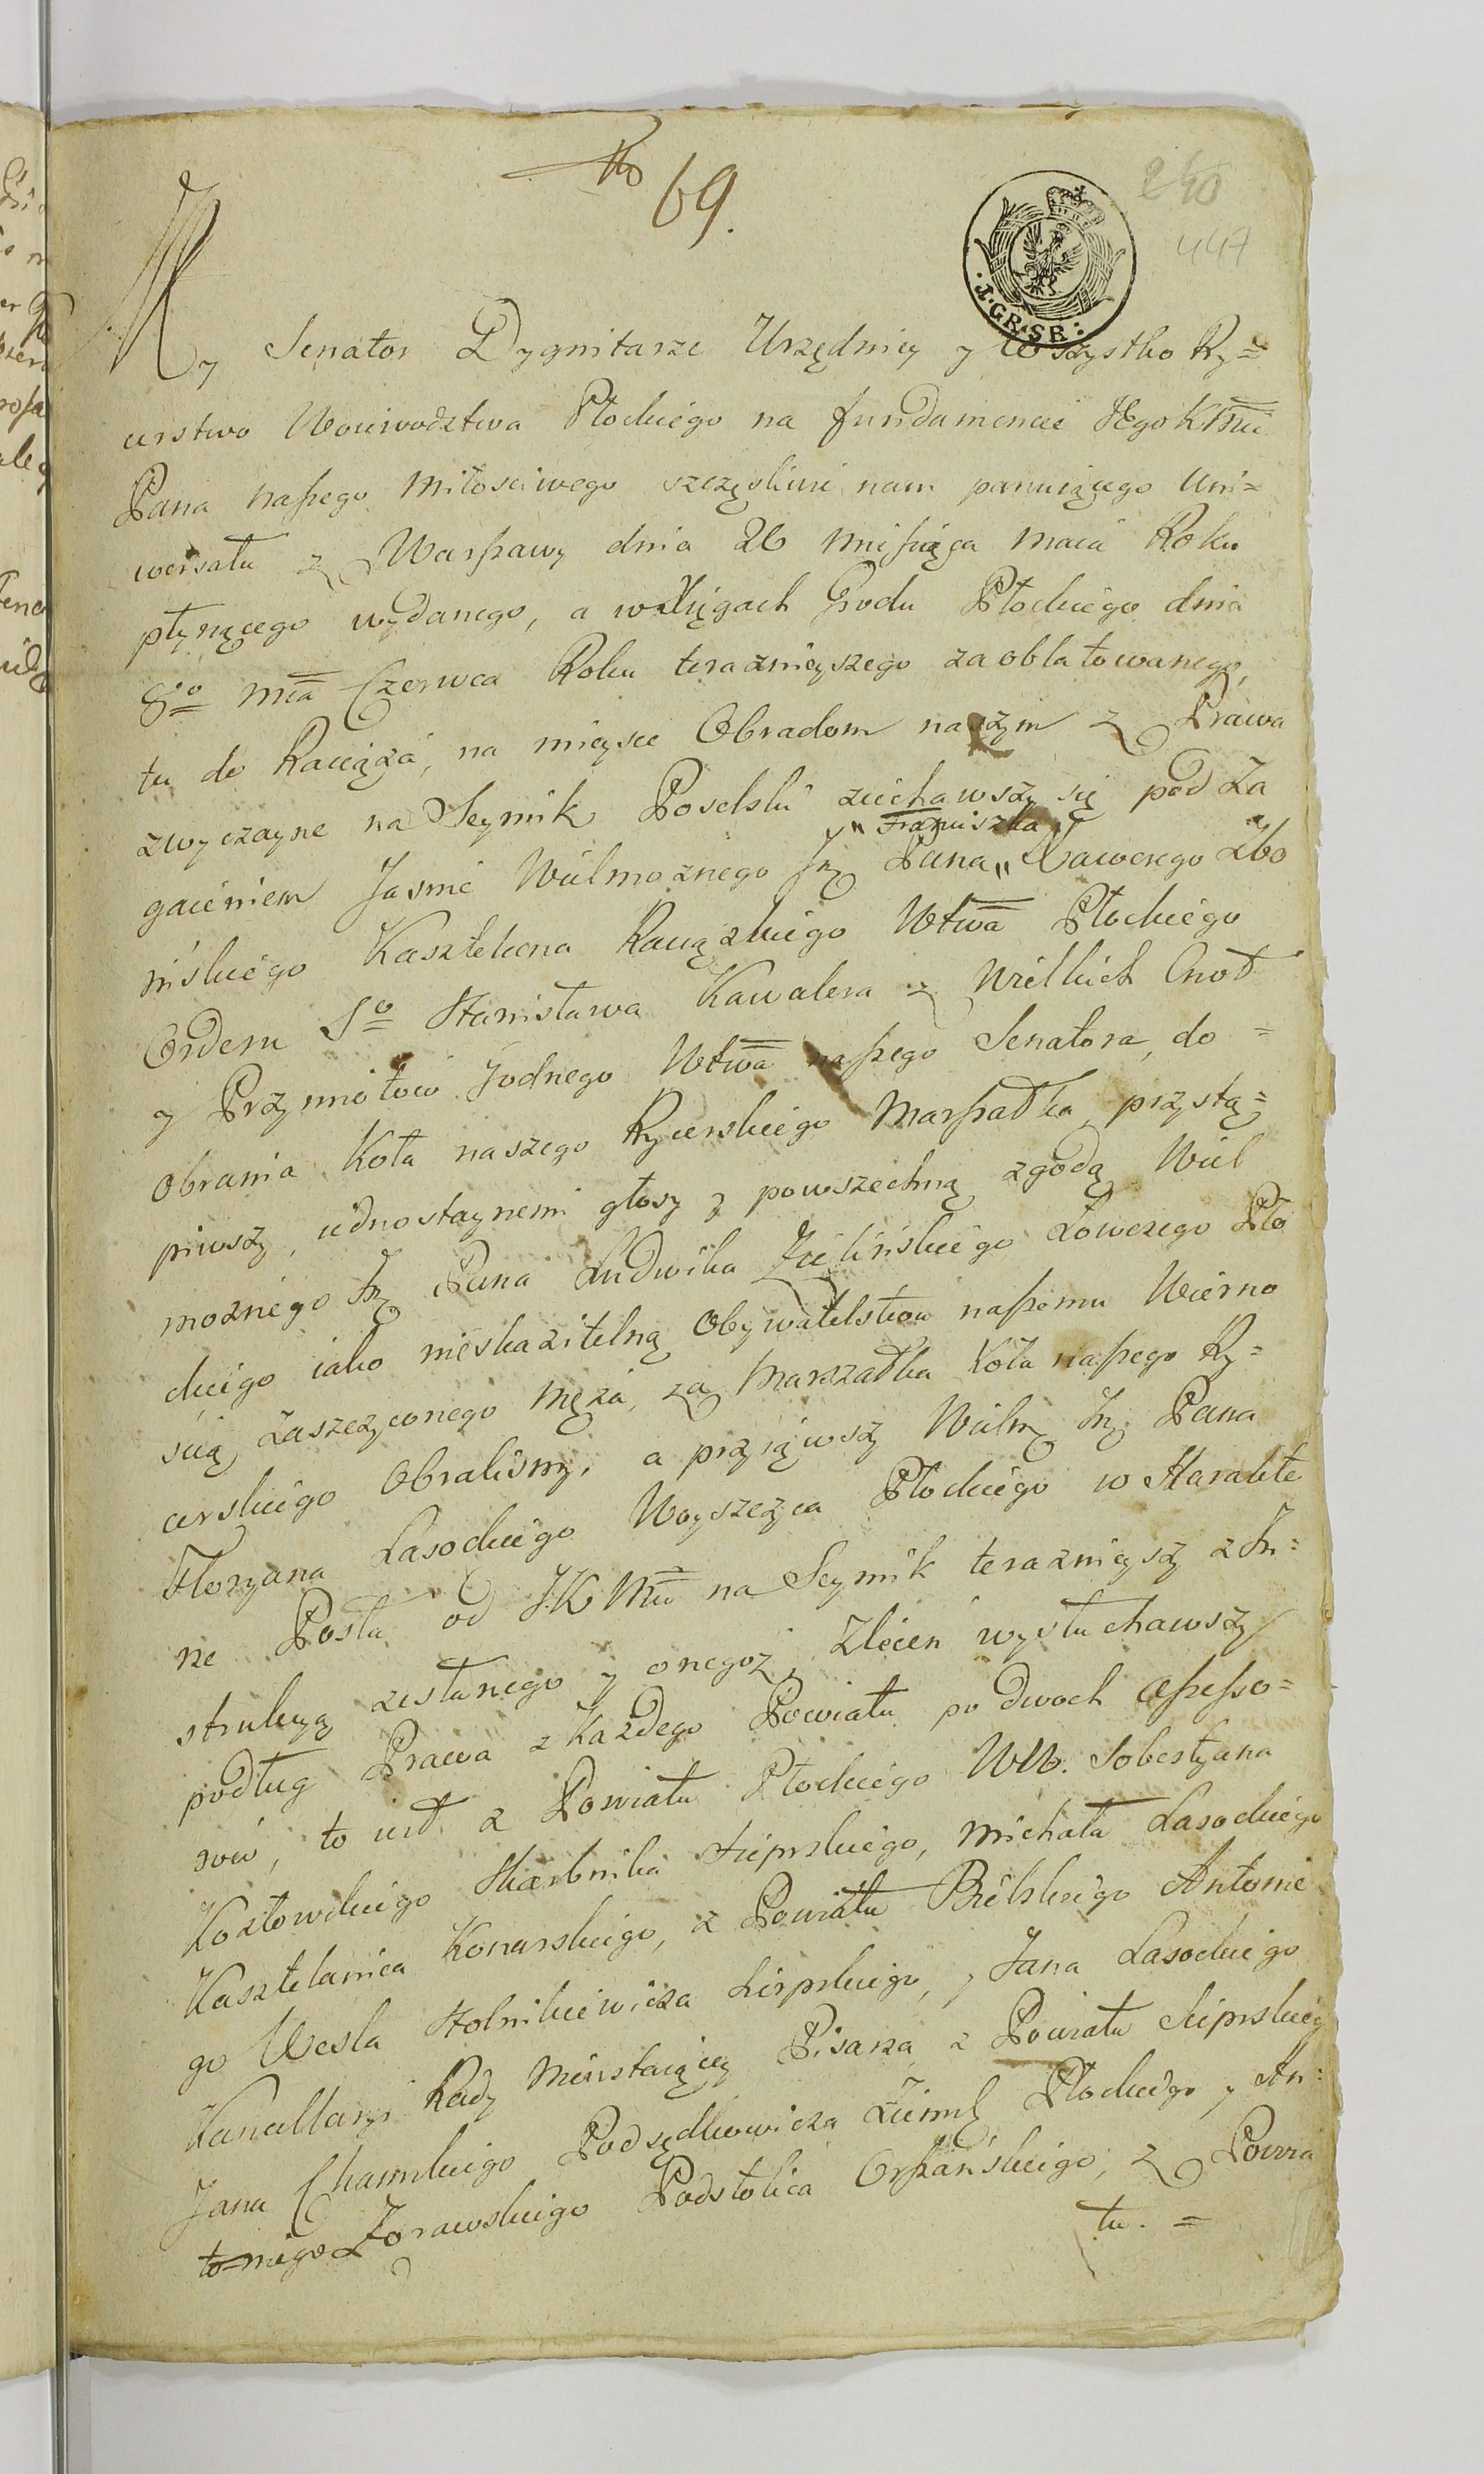 No 69.
240
447
1.GR.SR:
My Senator Dygnitarze Urzędnicy y Wszystko Ry=
cerstwo Woiewodztwa Płockiego na fundamencie JEgo KMci
Pana naszego Miłosciwego szczęsliwie nam panuiącego Uni=
wersału z Warszawy dnia 26 Miesiąca Maia Roku
płynącego wydanego, a w Xięgach Grodu Płockiego dnia
8o Mca Czerwca Roku teraznieyszego zaoblatowanego,
tu do Raciąża, na mieysce Obradom naszym z Prawa
zwyczayne na Seymik Poselski ziechawszy się pod Za
gaieniem Jasnie Wielmoznego Jmci Pana „ Xawerego Zbo
y „ Franciszka
ińskiego Kasztelana Raciązkiego Wtwa Płockiego
Orderu So Stanisława Kawalera z Wielkich Cnot
y Przymiotow Godnego Wtwa naszego Senatora, do =
Obrania Koła naszego Rycerskiego Marszałka, przystą=
piwszy, iednostaynemi głosy z powszechną zgodą Wiel
moznego Jmci Pana Ludwika Zielińskiego Łowczego Pło
ckiego iako nieskazitelną Obywatelstwu naszemu Wierno
scią Zaszczyconego męża, za Marszałka Koła naszego Ry=
cerskiego Obralismy, a przyiąwszy Wielm Jmci Pana
Floryana Lasockiego Woyszczyca Płockiego w Charakte
rze Posła od J.K Mci na Seymik teraznieyszy z In=
strukcyą zesłanego y onegoż Zlecen wysłuchawszy
podług Prawa z Każdego Powiatu po dwoch Assesso=
row, to iest z Powiatu Płockiego WW. Sobestyana
Kozłowskiego Skarbnika Sierpskiego, Michała Lasockiego
Kasztelanica Konarskiego, z Powiatu Bielskiego Antonie
go Wesla Stolnikiewicza Sierpskiego, y Jana Lasockiego
Kancellaryi Rady Nieustaiącey Pisarza z Powiatu Sierpskieg
Jana Chamskiego Podsędkowicza Ziemsk Płockiego y An=
toniego Zorawskiego Podstolica Orszańskiego, z Powia
tu. =